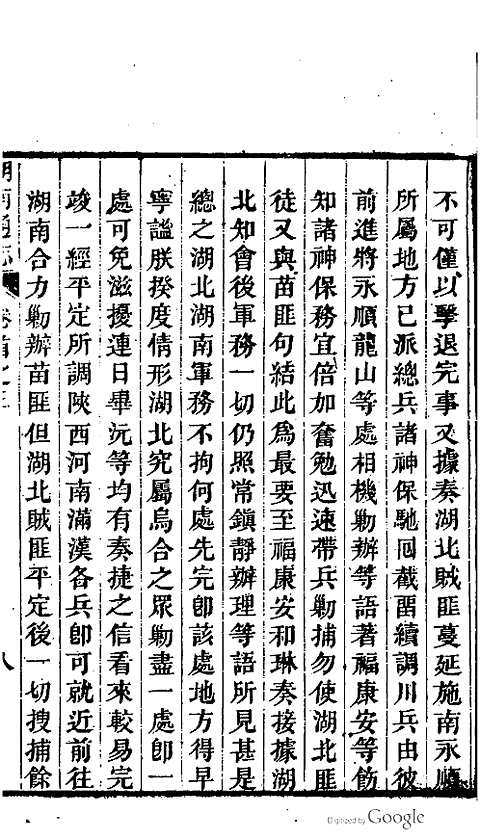 不可僅以擊退完事又據奏湖北賊匪蔓延施南永順
所屬地方已派總兵諸神保馳回截畱續調川兵由彼
前進將永順龍山等處相機勦辦等語著福康安等飭
知諸神保務宜倍加奮勉迅速帶兵勦捕勿使湖北匪
徒又與苗匪句結此為最要至福康安和琳奏接據湖
北知會後軍務一切仍照常鎭靜辦理等語所見甚是
總之湖北湖南軍務不拘何處先完卽該處地方得早
寧謐朕揆度情形湖北究屬烏合之眾勦盡一處卽一
處可免滋擾連日畢沅等均有奏捷之信看來較易完
竣一經平定所調陝西河南滿漢各兵卽可就近前往
湖南合力勦辦苗匪但湖北賊匪平定後一切搜捕餘
湖南通志 卷首之三 八
Digitized by Google